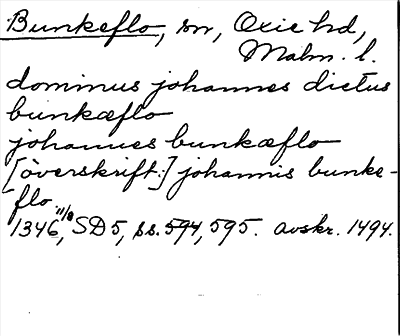 Bunkeflo, sn, Oxie hd,
Malm. l.
dominus johannes dictus
bunkæflo
johannes bunkæflo
[överskrift:] johannis bunke-
flo
1346 11/8, SD5, ss. 594, 595. avskr. 1494.